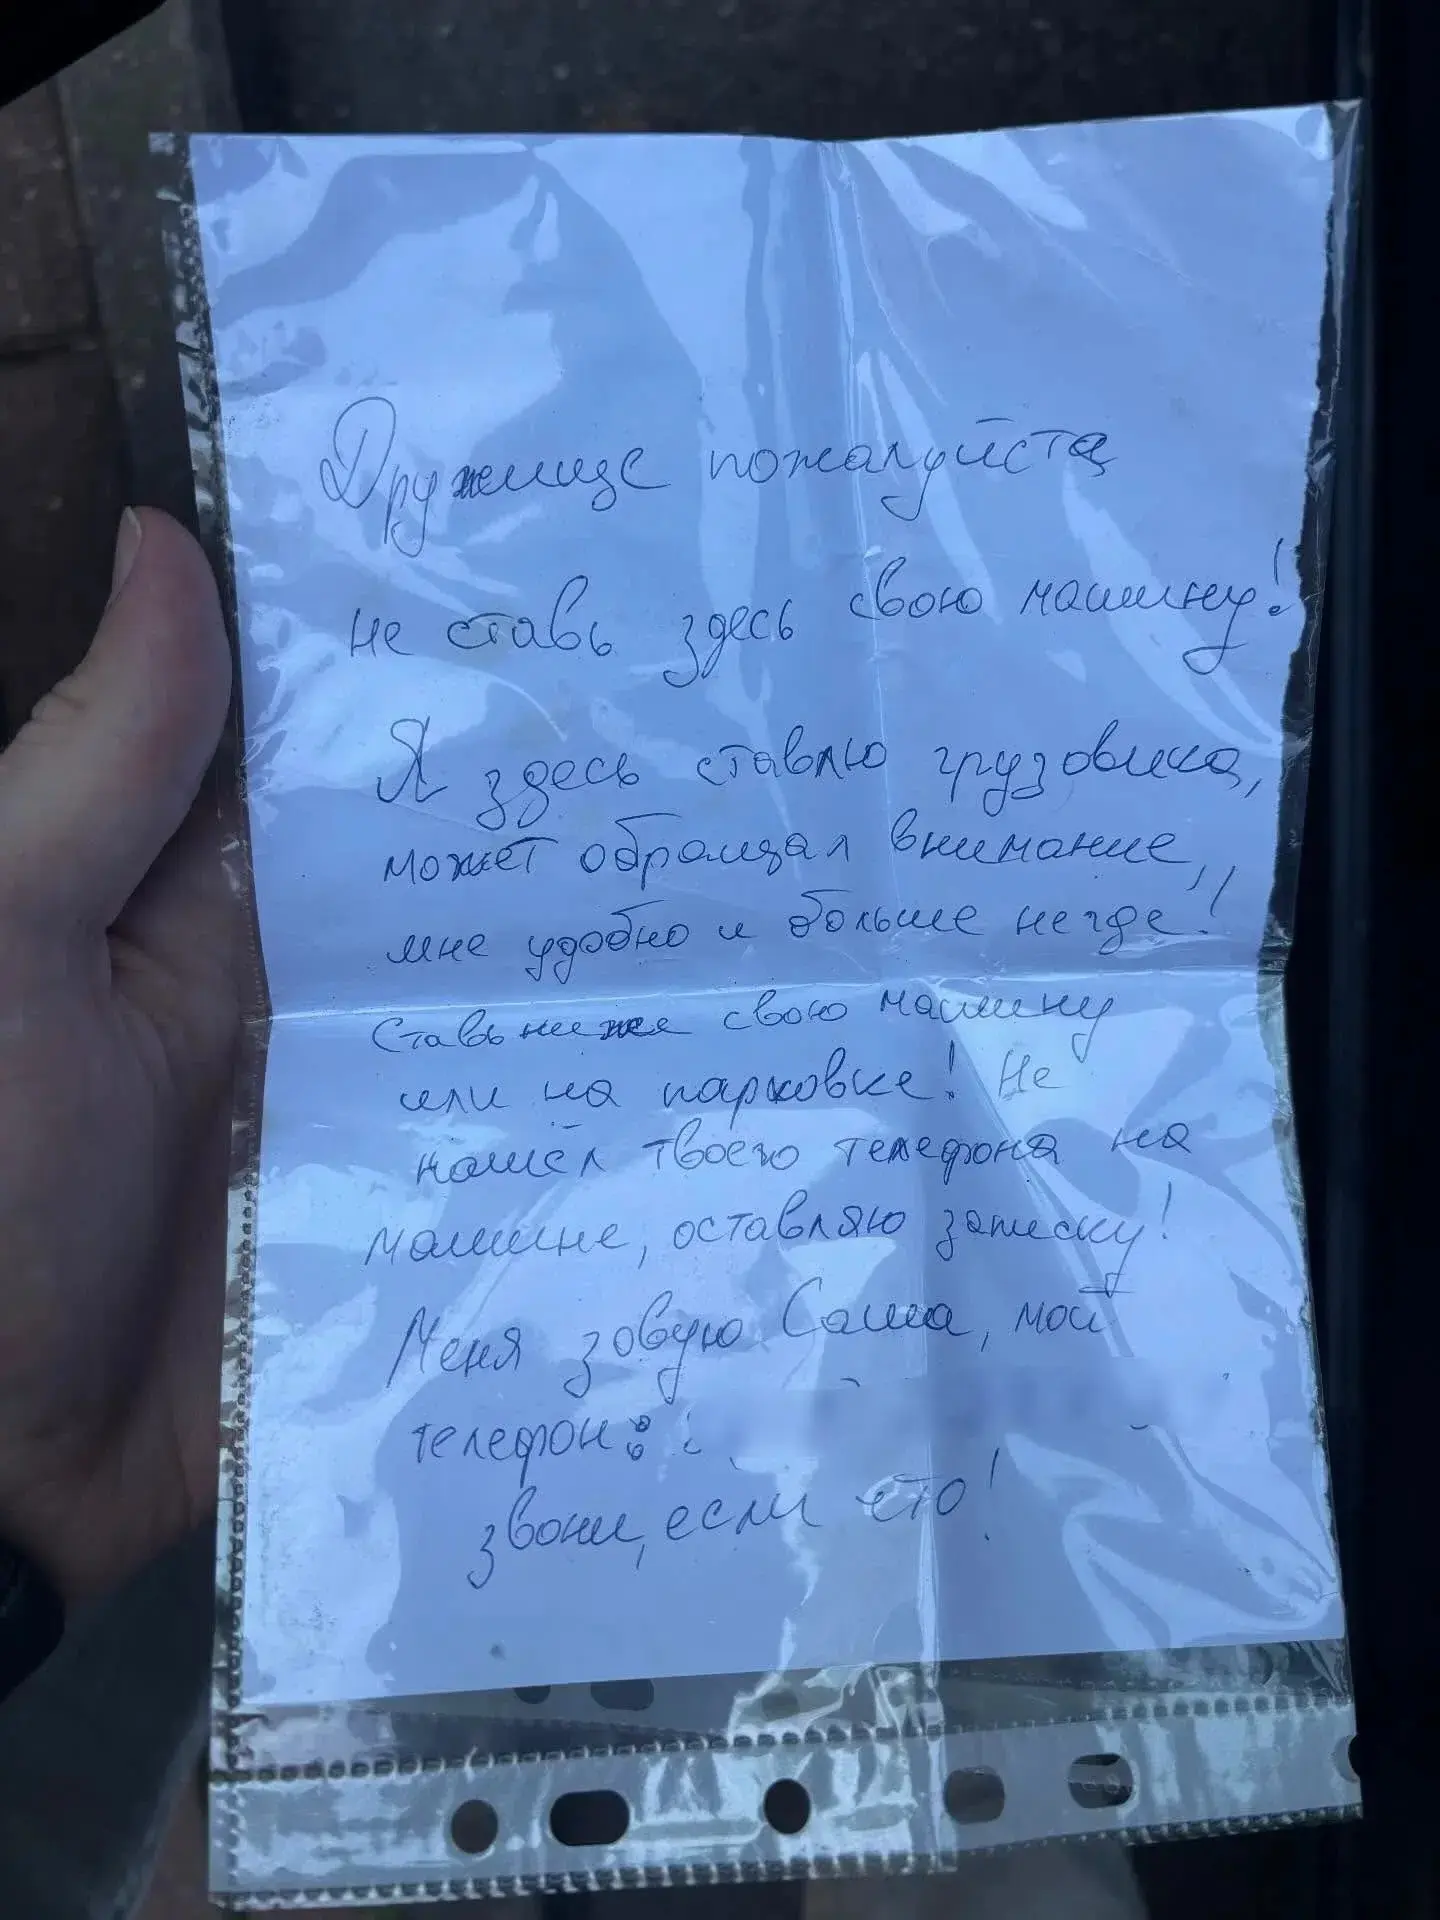 Дружище пожалуйста
не ставь здесь свою машину!
Я здесь ставлю грузовика,
может обращал внимание,
мне удобно и больше негде!
Ставь ниже свою машину
или на парковке! Не
нашёл твоего телефона на
машине, оставляю записку!
Меня зовую Саша, мой
телефон:
звони, если что!